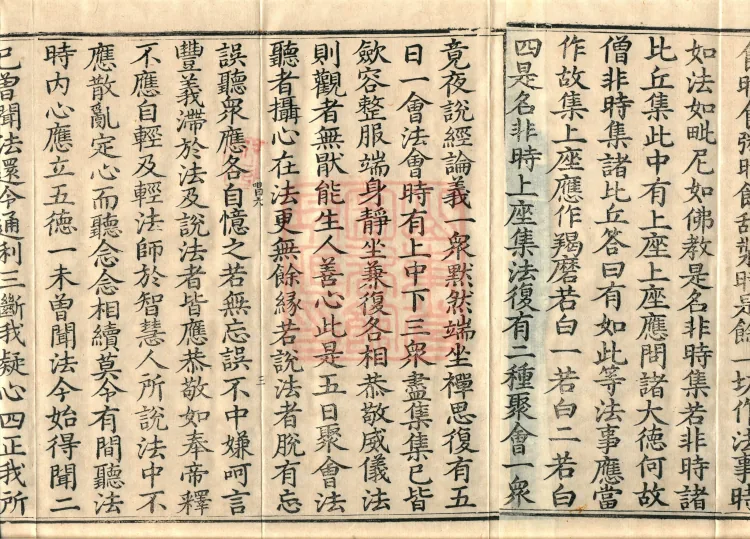 時是餘一切作法事時
如法如毗尼如佛教是名非時集若非時諸
比丘集此中有上座上座應問諸大德何故
僧非時集諸比丘答曰有如此等法事應當
作故集上座應作羯磨若白一若白二若白
四是名非時上座集法復有二種聚會一衆
竟夜說經論義一衆默然端坐禪思復有五
日一會法會時有上中下三衆盡集集已皆
斂容整服端身靜坐兼復各相恭敬威儀法
則觀者無猒能生人善心此是五日聚會法
聽者攝心在法更無餘緣若說法者脫有忘
三
誤聽衆應各自憶之若無忘誤不中嫌呵言
豐義滯於法及說法者皆應恭敬如奉帝釋
不應自輕及輕法師於智慧人所說法中不
應散亂定心而聽念念相續莫令有間聽法
時内心應立五德一未曾聞法今始得聞二
已曾聞法還令通利三斷我疑心四正我所